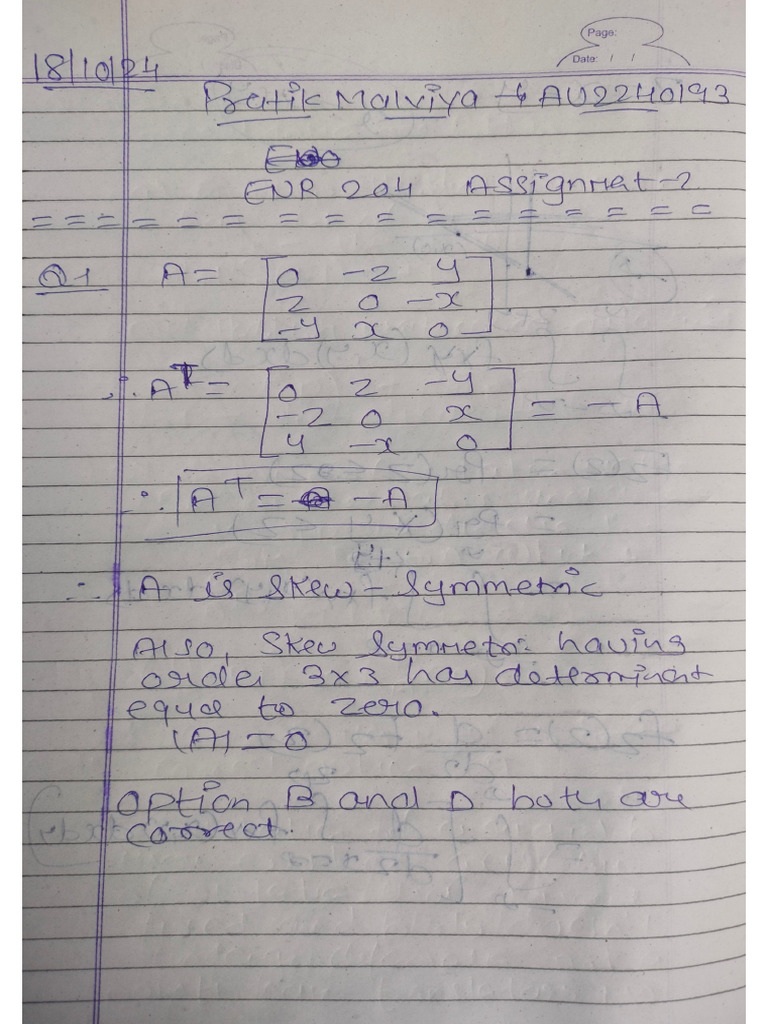 Page:
Date: / /
18/10/24
Pratik Malviya → AU2240193
ENR 204 Assignmet-2
= = = = = = = = = = = = = = =
Q1 A = [0 -2 y
2 0 -x
-y x 0]
∴ A^T = [0 2 -y
-2 0 x
y -x 0] = - A
∴ A^T = -A
∴ A is skew-symmetric
Also, Skew Symmetric having
order 3x3 has determinent
equal to zero.
|A| = 0
option B and D both are
correct.